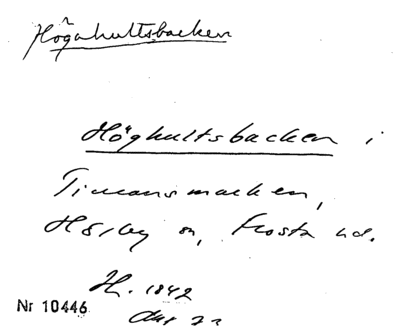 Höganhultsbacken
Höghultsbacken i
Timansmarken,
Hörby sn, Frosta hd.
H. 1842
Nr 10446